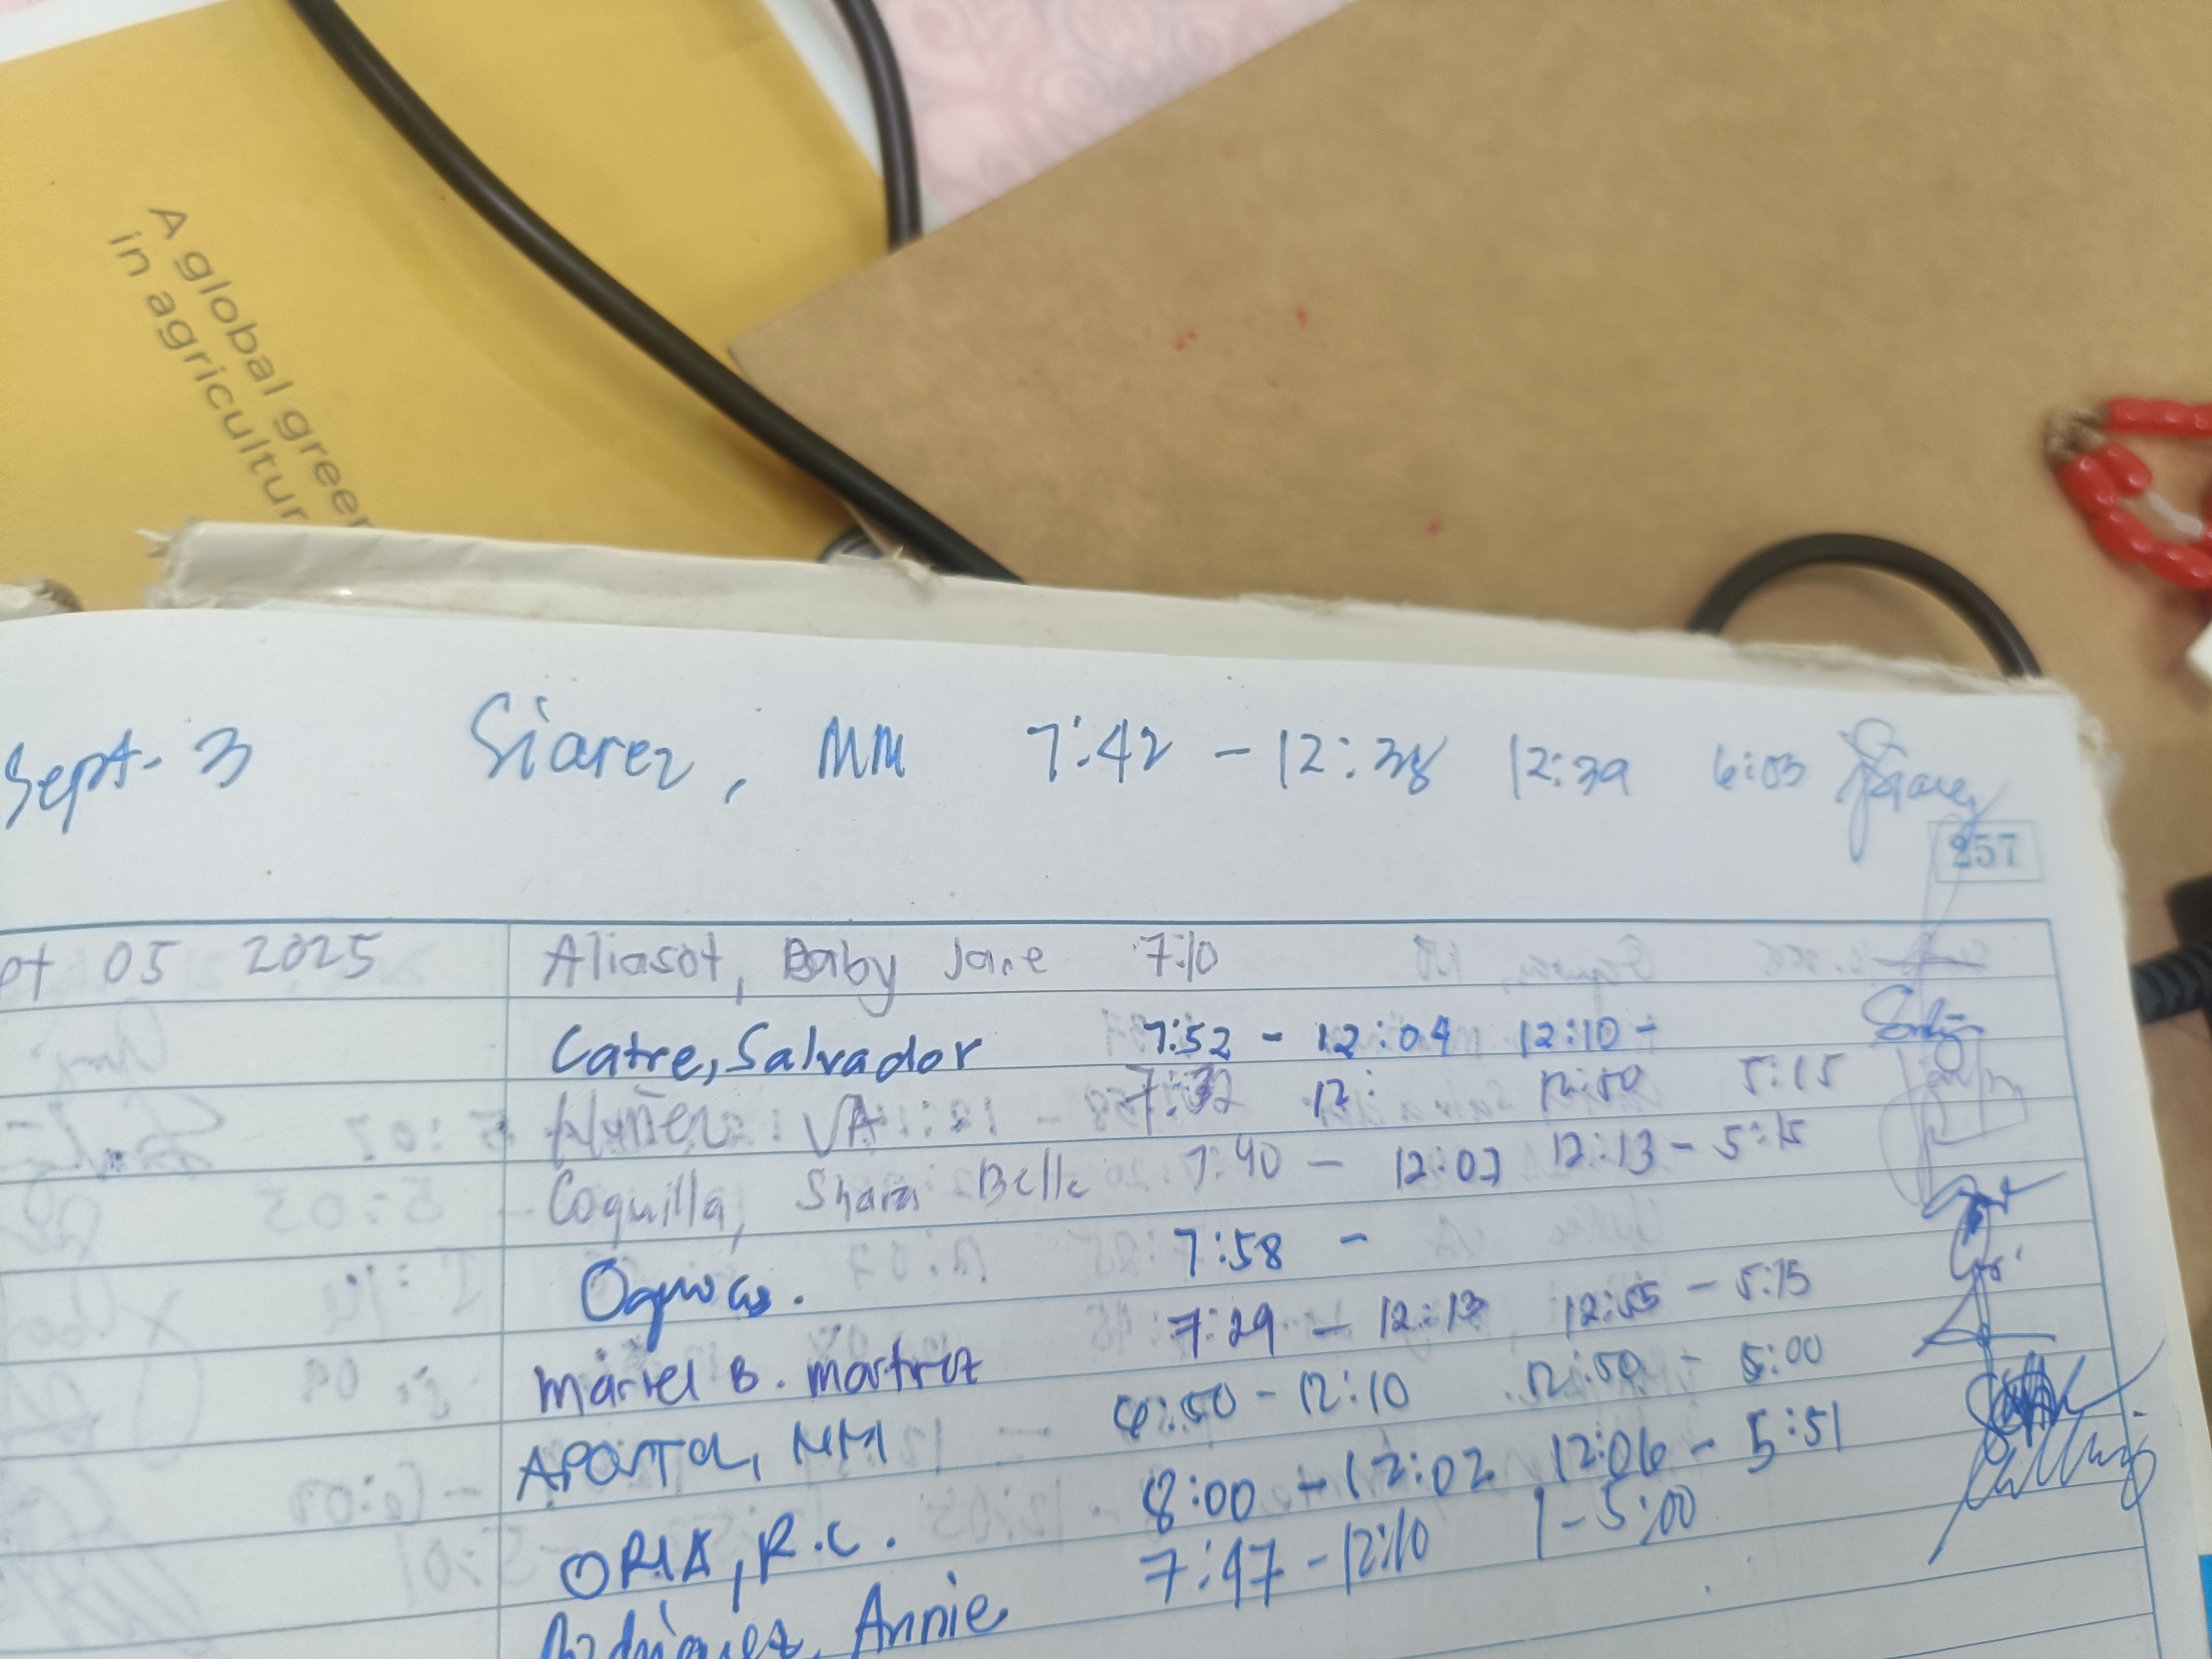 A global green
in agricultur
Sept. 3 Siarez, MM 7:42 - 12:38 12:39 6:03
257
pt 05 2025 Aliasot, Baby Jane 7:10
Catre, Salvador 7:52 - 12:04 12:10 -
Nuñez VA 7:32 12: 12:50 5:15
Coquilla, Shara Belle 7:40 - 12:07 12:13 - 5:15
7:58 -
Mariel B. 7:29 - 12:13 12:55 - 5:15
MM :50 - 12:10 12:50 - 5:00
ORIA, R.C. 8:00 - 12:02 12:06 - 5:51
Rodriguez, Annie 7:47 - 12:10 1 - 5:00